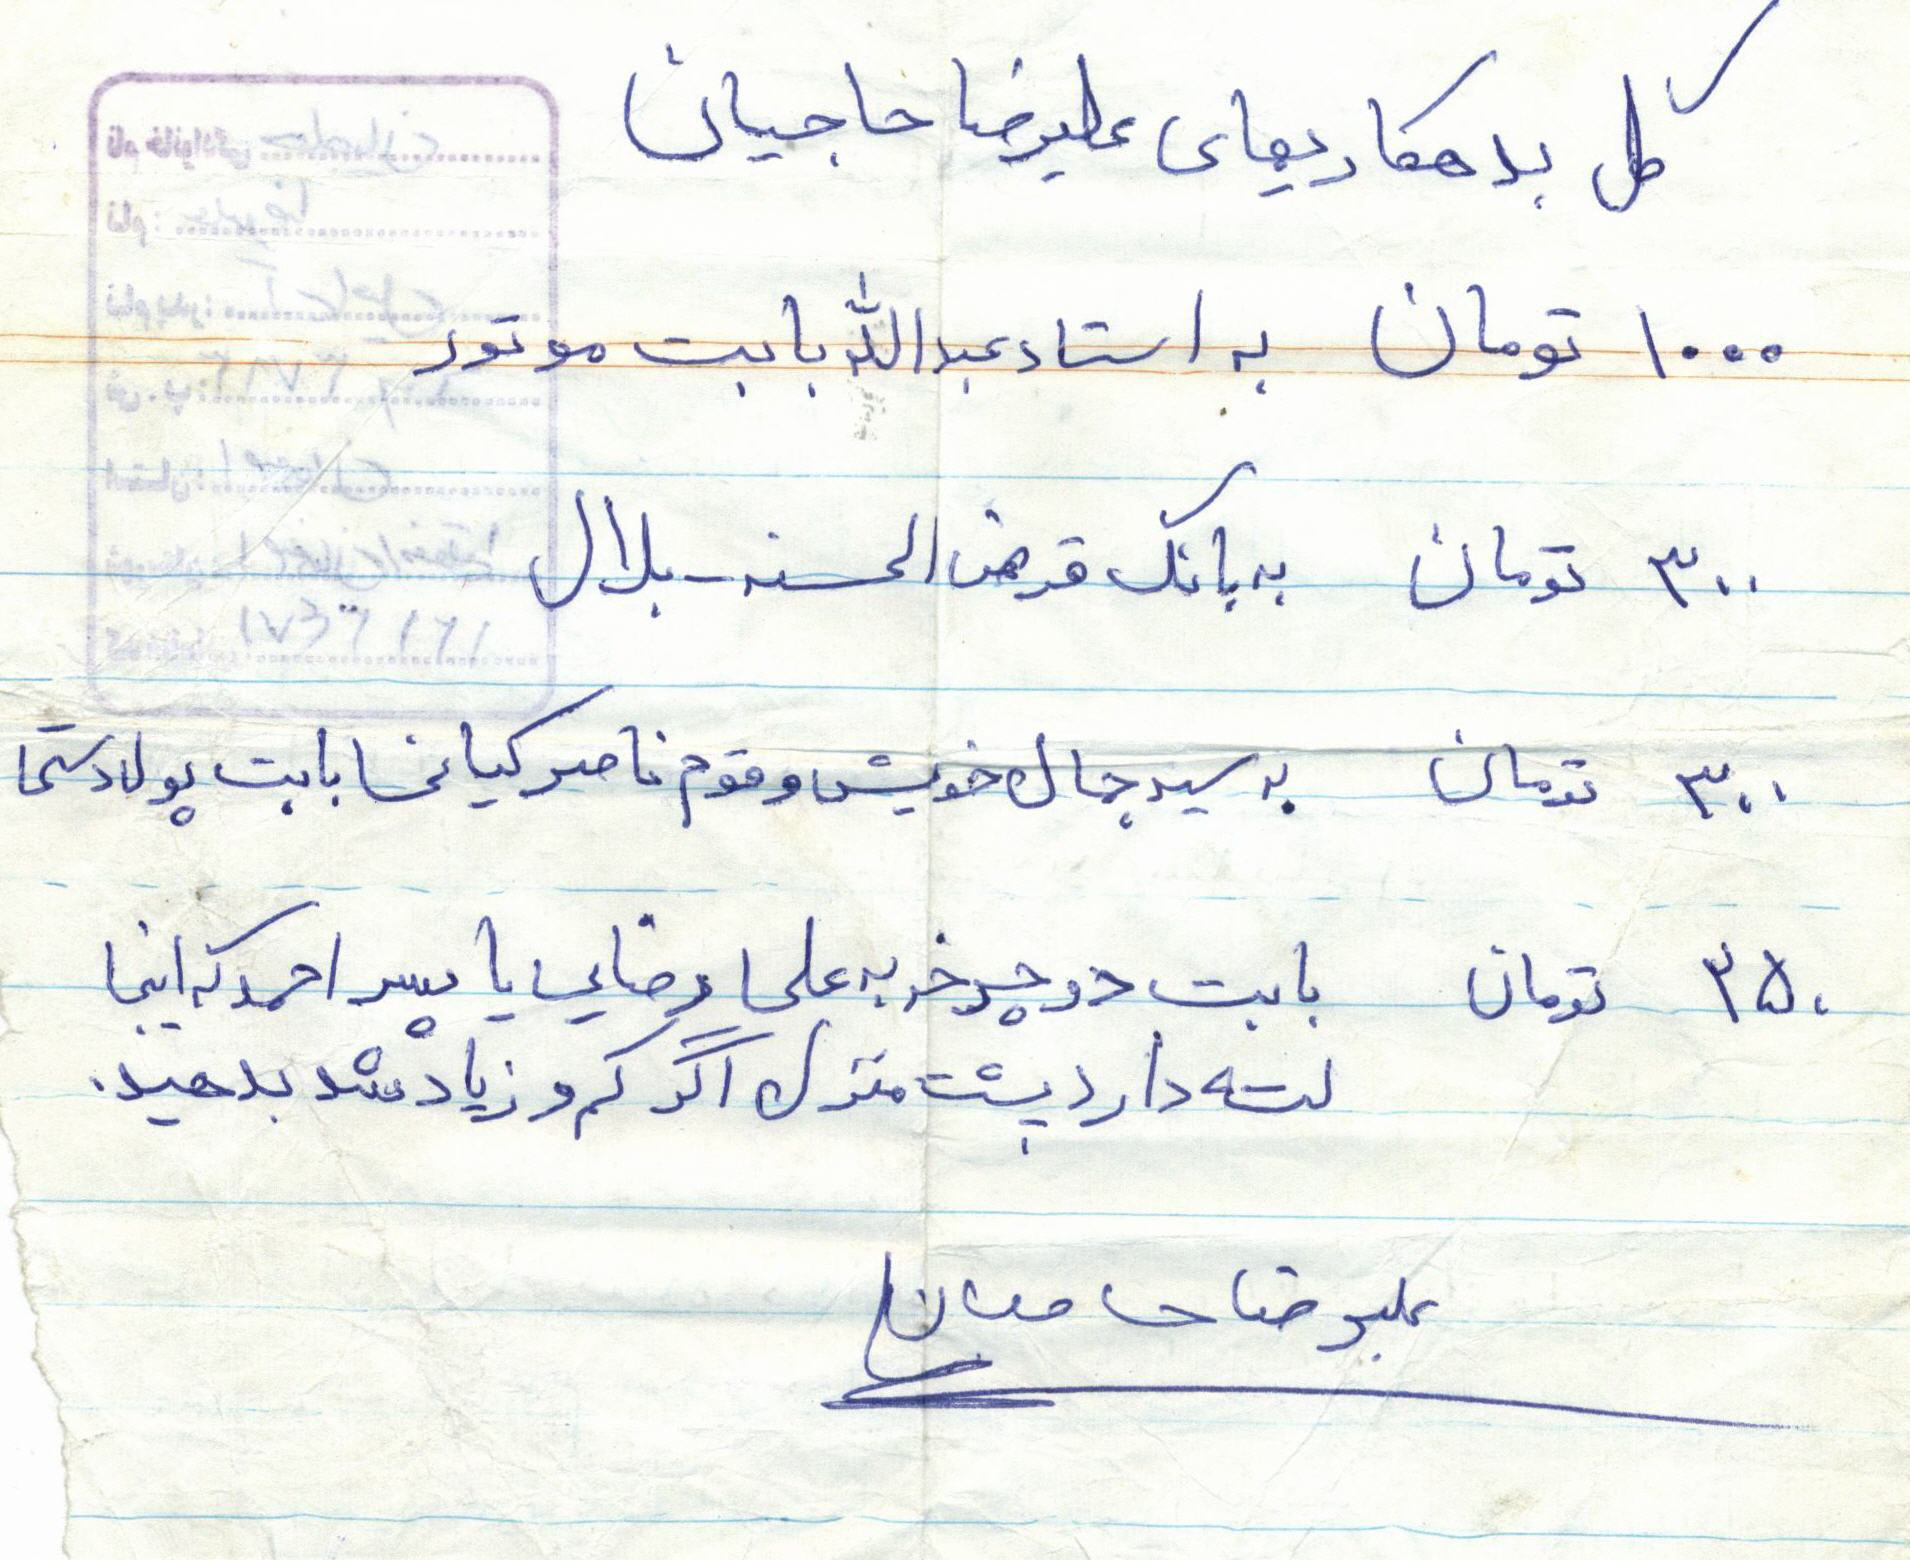 کل بدهکاریهای علیرضا حاجیان
۱۰۰۰ تومان به استاد عبدالله بابت موتور
۳۰۰ تومان به بانک قرض الحسنه - بلال
۳۰۰ تومان به سید جمال خویش و قوم ناصر کیانی بابت پول
۲۵۰ تومان بابت دوچرخه به علی رضایی یا پسر احمد که اینجا
لته دارد پشت منزل اگر کم و زیاد شد بدهید.
علیرضا حاجیان